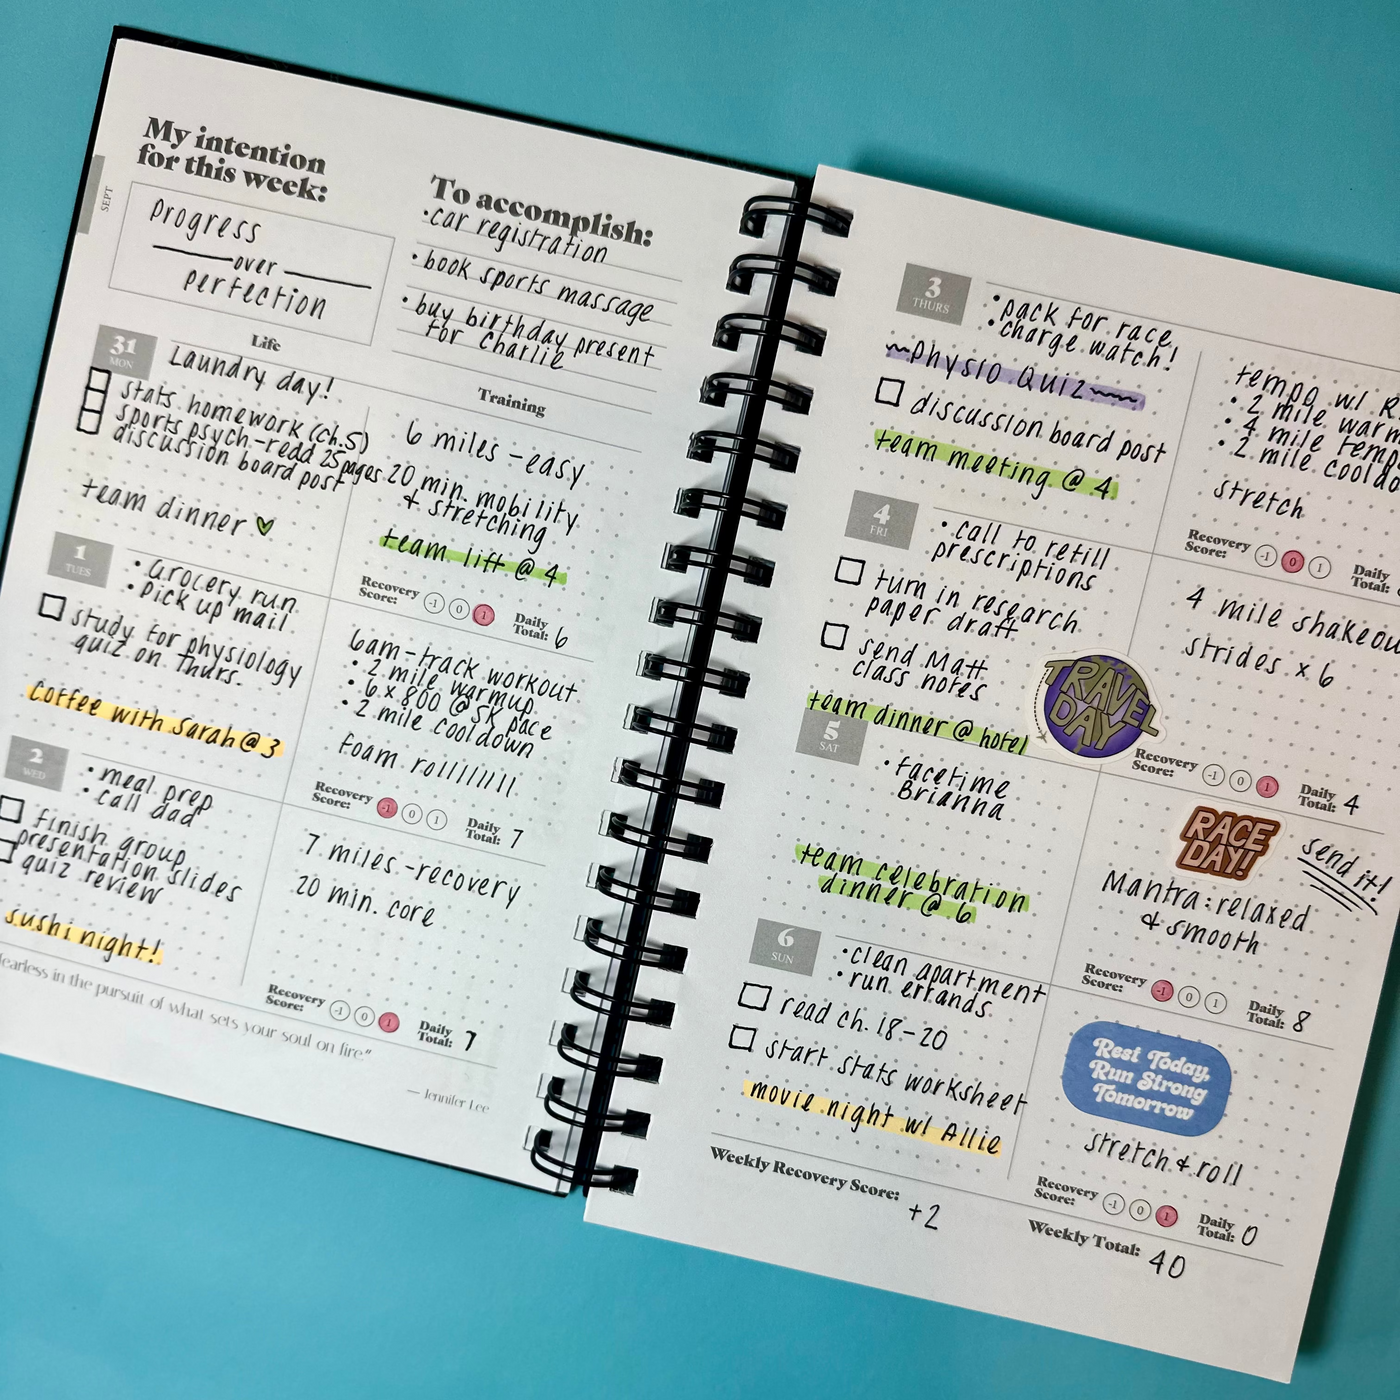 My intention
for this week:
SEPT
Progress
over
perfection
To accomplish:
•car registration
•book sports massage
•buy birthday present
for Charlie
Life
Training
31
MON
Laundry day!
stats homework (ch.5)
sports psych-read 25pages
discussion board post
team dinner
6 miles - easy
20 min. mobility
& stretching
team lift @ 4
Recovery
Score: -1 0 1
Daily
Total: 6
1
TUES
•Grocery run
•Pick up mail
study for physiology
quiz on Thurs.
Coffee with Sarah @ 3
6am-track workout
•2 mile warmup
•6 x 800 @ 5K pace
•2 mile cooldown
foam rollllllll
Recovery
Score: -1 0 1
Daily
Total: 7
2
WED
•meal prep
•call dad
finish group
presentation slides
quiz review
sushi night!
7 miles-recovery
20 min. core
Recovery
Score: -1 0 1
Daily
Total: 7
fearless in the pursuit of what sets your soul on fire”
— Jennifer Lee
3
THURS
•pack for race
•charge watch!
~Physio Quiz~
discussion board post
team meeting @ 4
tempo w/
•2 mile
•4 mile
•2 mile
stretch
Recovery
Score: -1 0 1
Daily
Total:
4
FRI
•call to refill
prescriptions
turn in research
paper draft
send Matt
class notes
team dinner @ hotel
TRAVEL
DAY
4 mile
strides x 6
Recovery
Score: -1 0 1
Daily
Total: 4
5
SAT
•facetime
Brianna
team celebration
dinner @ 6
RACE
DAY!
send it!
Mantra: relaxed
& smooth
Recovery
Score: -1 0 1
Daily
Total: 8
6
SUN
•clean apartment
•run errands
read ch. 18-20
start stats worksheet
movie night w/ Allie
Rest Today,
Run Strong
Tomorrow
stretch & roll
Recovery
Score: -1 0 1
Daily
Total: 0
Weekly Recovery Score: +2
Weekly Total: 40